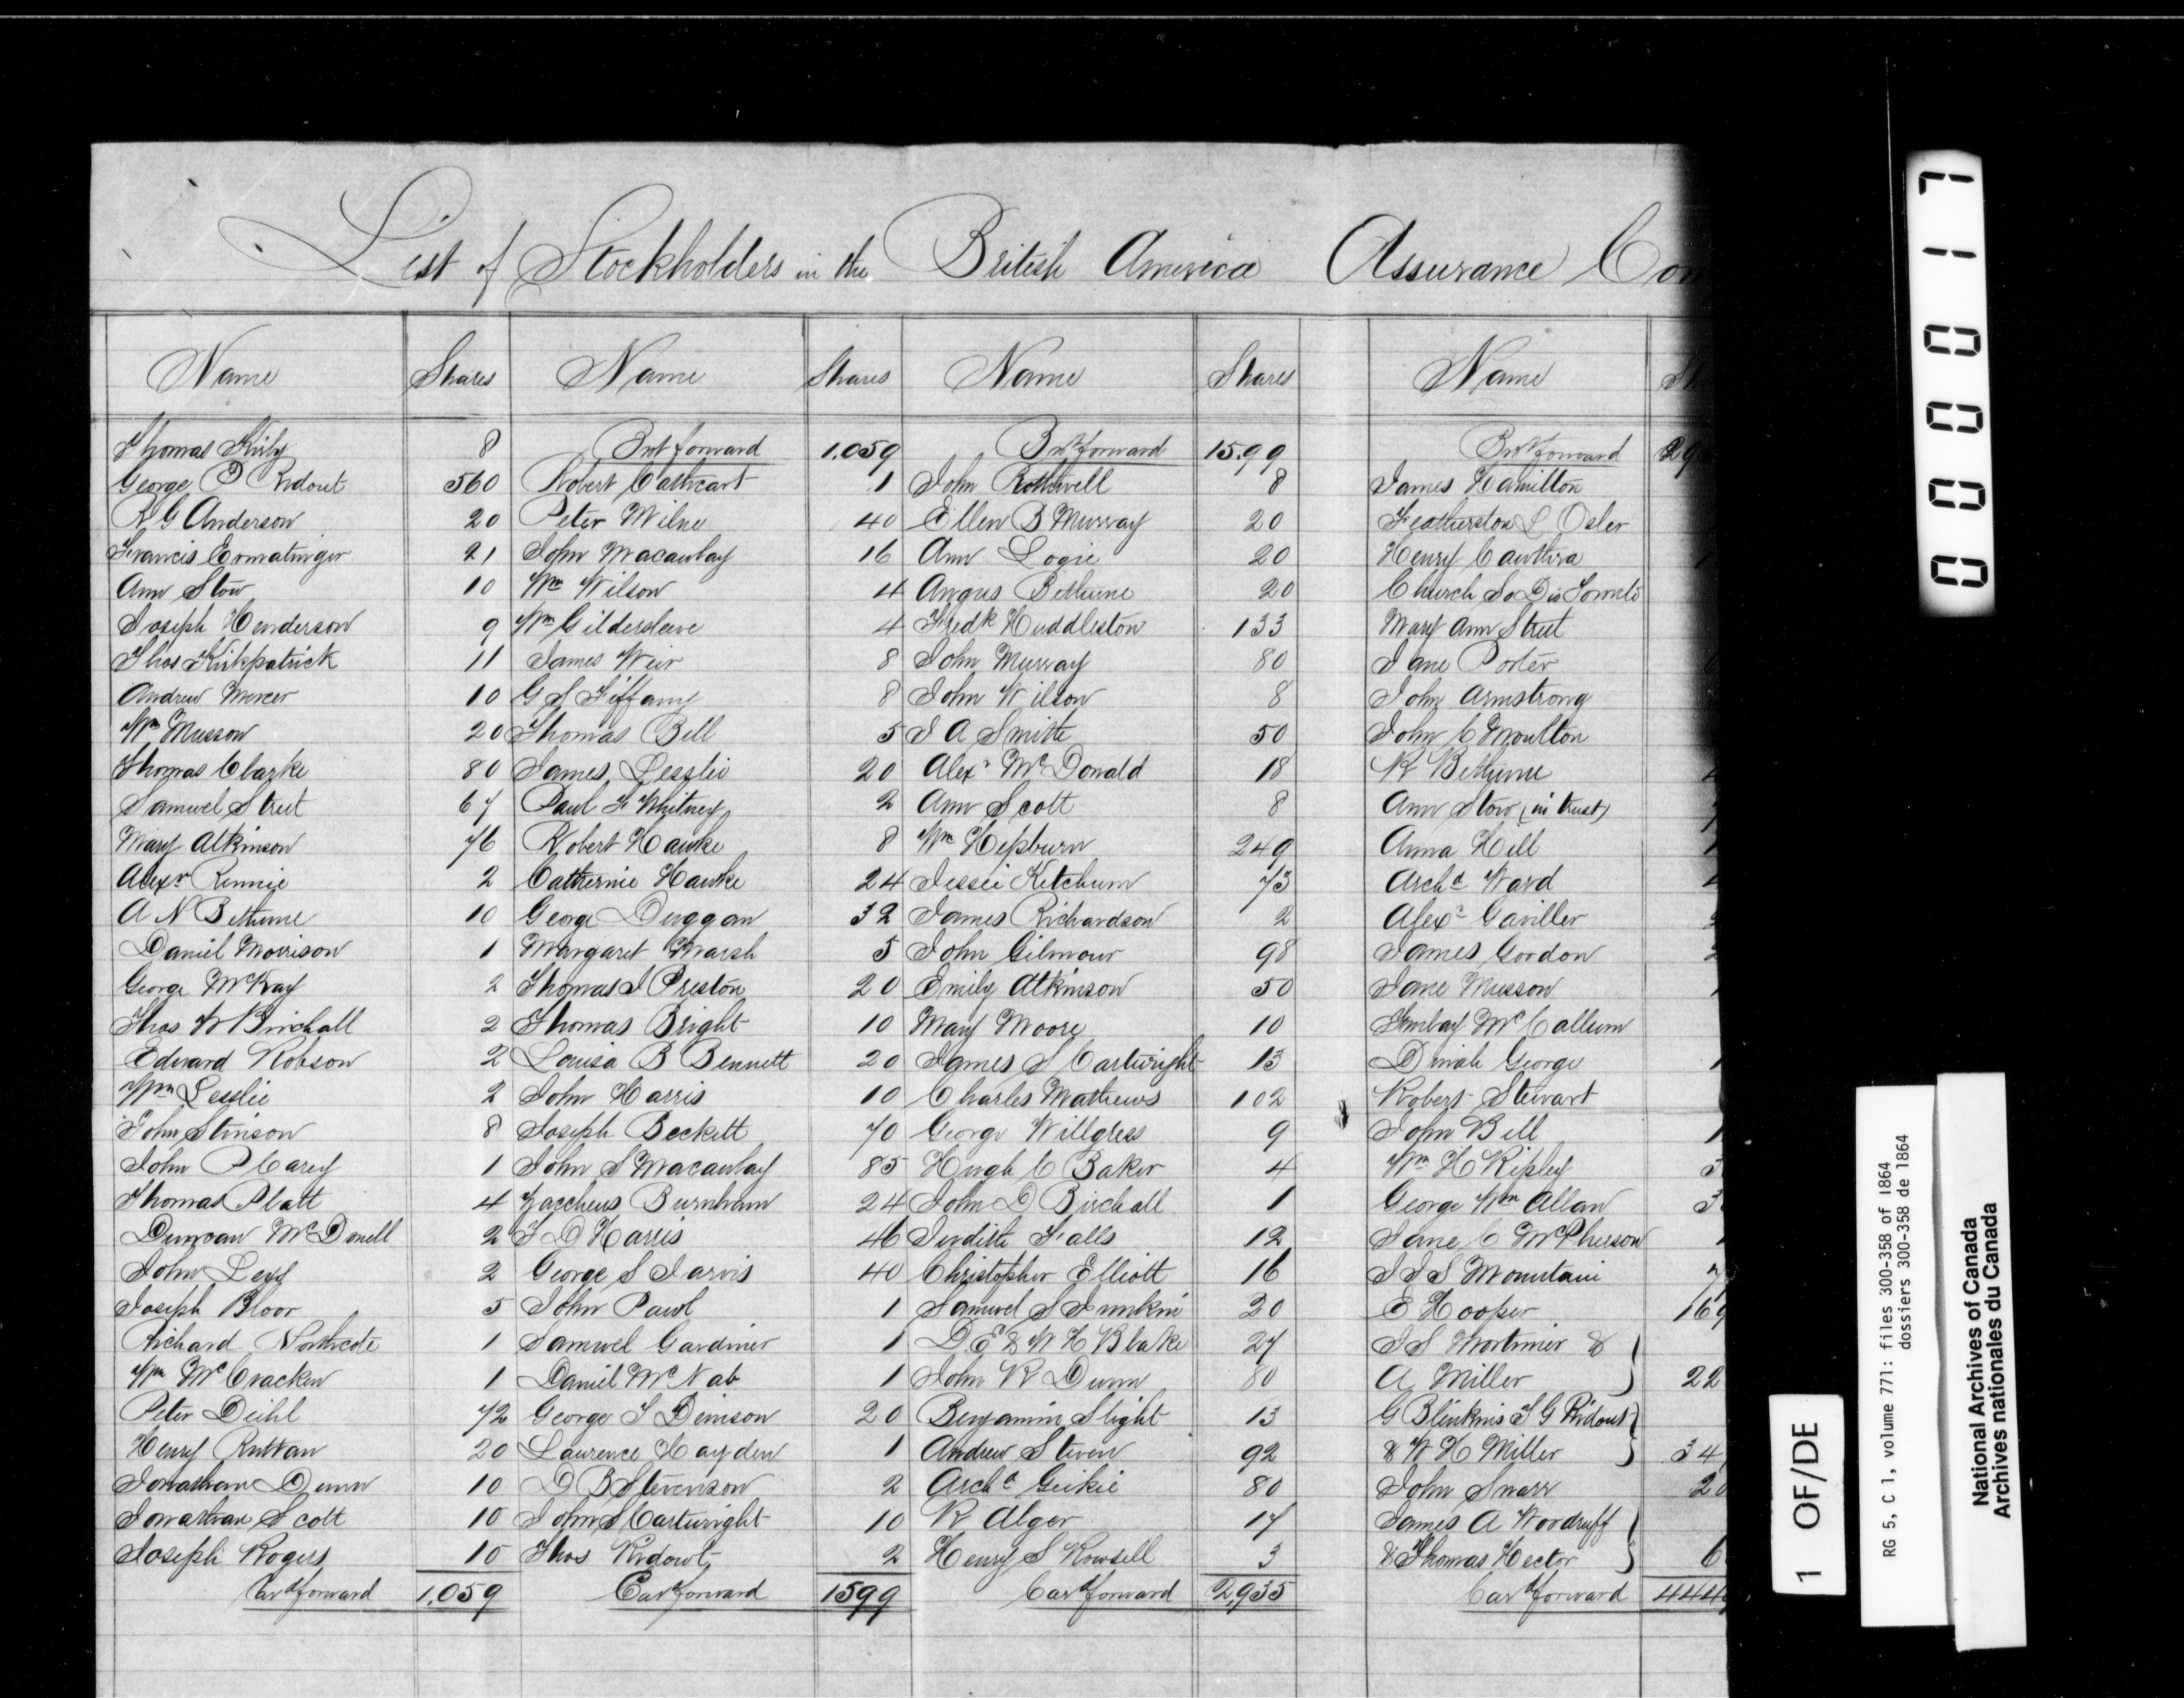 List of Stockholders in the British America Assurance Con
Name Shares Name Shares Name Shares Name Sh
Thomas Kirby 8 Brot forward 1.059 Brot forward 15.99 Brot forward 29
George P Ridout 560 Robert Cathcart 1 John Rothwell 8 James Hamilton
R G Anderson 20 Peter Milne 40 Ellen B Murray 20 Featherston L Osler
Francis Ermatinger 21 John Macaulay 16 Ann Logie 20 Henry Cawthra
Ann Stow 10 Wm Wilson 4 Angus Bethune 20 Church So Dio Toronto
Joseph Henderson 9 Wm Gildersleeve 4 Fredk Huddleston 133 Mary Ann Street
Thos Kirkpatrick 11 James Weir 8 John Murray 80 Jane Porter
Andrew Mercer 10 G S Tiffany 8 John Wilson 8 John Armstrong
Wm Musson 20 Thomas Bell 5 J A Smith 50 John C Moulton
Thomas Clarke 80 James Lesslie 20 Alexr McDonald 18 R Bethune
Samuel Street 67 Paul F Whitney 2 Ann Scott 8 Ann Stow (in trust)
Mary Atkinson 76 Robert Hawke 8 Wm Hepburn 249 Anna Hill
Alexr Rennie 2 Catherine Hawke 24 Jessie Ketchum 73 Archd Ward
A N Bethune 10 George Duggan 32 James Richardson 2 Alexr Gaviller
Daniel Morrison 1 Margaret Marsh 5 John Gilmour 98 James Gordon
George McKay 2 Thomas J Preston 20 Emily Atkinson 50 Jane Musson
Thos W Birchall 2 Thomas Bright 10 Mary Moore 10 McCallum
Edward Robson 2 Louisa B Bennett 20 James S Cartwright 13 Dinah George
Wm Lesslie 2 John Harris 10 Charles Mathews 102 Robert Stewart
John Stinson 8 Joseph Beckett 70 George Willgress 9 John Bell
John P Carey 1 John S Macaulay 85 Hugh C Baker 4 Wm H Ripley
Thomas Platt 4 Zaccheus Burnham 24 John D Birchall 1 George Wm Allan
Duncan McDonell 2 T D Harris 46 Judith Falls 12 Jane C McPherson
John Leys 2 George S Jarvis 40 Christopher Elliott 16 J J S Mountain
Joseph Bloor 5 John Pawl 1 Samuel S Junkin 20 E Hooper 169
Richard Northcote 1 Samuel Gardiner 1 D. E & W H Blake 27 J S Mortimer &
Wm McCracken 1 Daniel McNab 1 John R Dunn 80 A Miller 22
Peter Deihl 72 George T Denison 20 Benjamin Slight 13 G Blinkins T G Ridout
Henry Ruttan 20 Laurence Hayden 1 Andrew Steven 92 & W H Miller 34
Jonathan Dunn 10 D B Stevenson 2 Archd Geikie 80 John Snarr 20
Jonathan Scott 10 John S Cartwright 10 R Alger 17 James A Woodruff
Joseph Rogers 10 Thos Ridout 2 Henry S Rowsell 3 & Thomas Hector 6
Card forward 1.059 Card forward 1599 Card forward 2935 Card forward 444
000017
1 OF/DE
RG 5, C 1, volume 771: files 300-358 of 1864
dossiers 300-358 de 1864
National Archives of Canada
Archives nationales du Canada